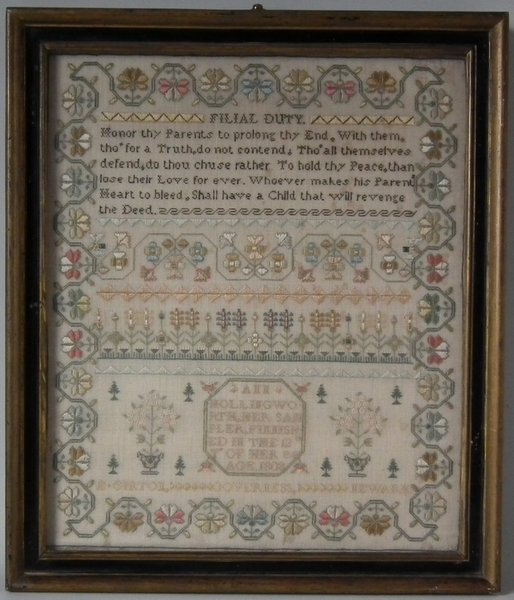 FILIAL DUTY.
Honor thy Parents to prolong thy End, With them,
tho' for a Truth, do not contend; Tho' all themselves
defend, do thou chuse rather To hold thy Peace, than
lose their Love for ever. Whoever makes his Parent
Heart to bleed, Shall have a Child that will revenge
the Deed.
ANN
HOLLINGWO
RTH, HER SAM
PLER, FINISH
ED IN THE 12
OF HER
AGE,
GOVERNESS, NEWARK